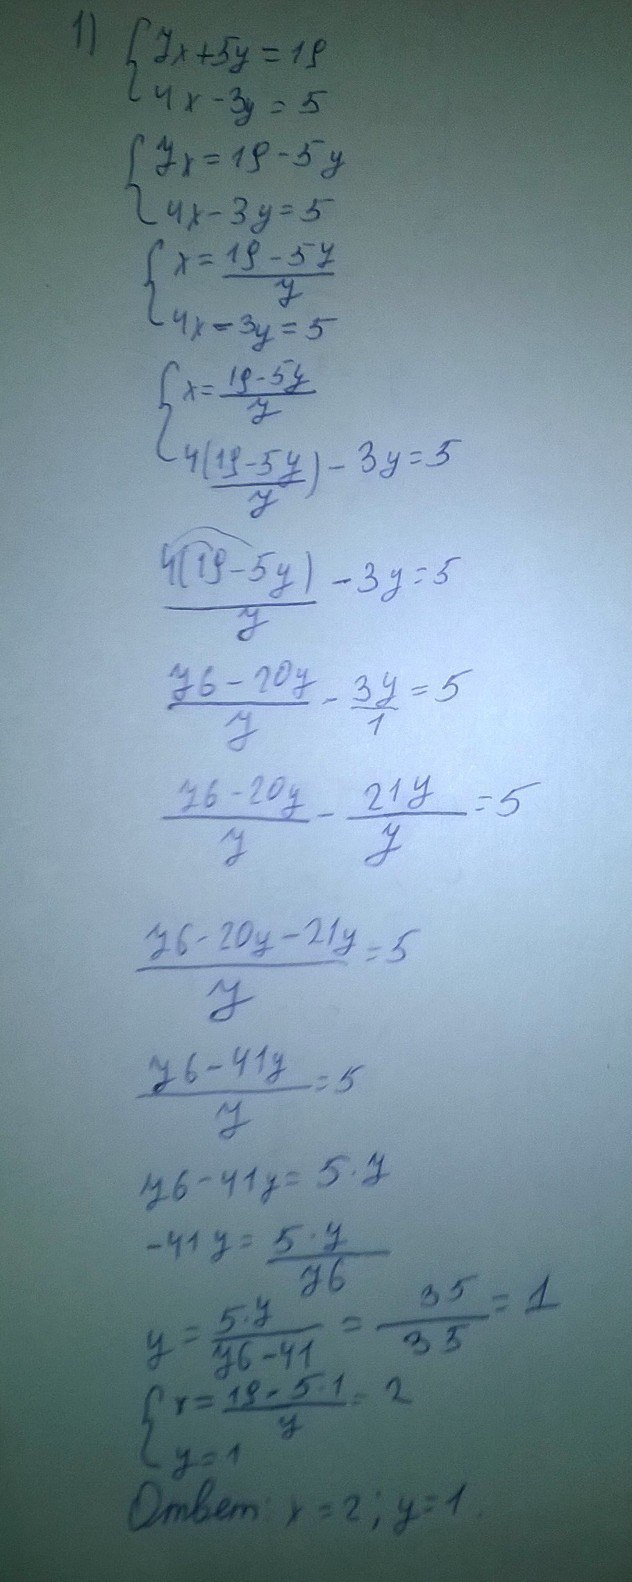 1) { 7x+5y=19
4x-3y=5
{ 7x=19-5y
4x-3y=5
{ x=\frac{19-5y}{7}
4x-3y=5
{ x=\frac{19-5y}{7}
4(\frac{19-5y}{7})-3y=5
\frac{4(19-5y)}{7}-3y=5
\frac{76-20y}{7}-\frac{3y}{1}=5
\frac{76-20y}{7}-\frac{21y}{7}=5
\frac{76-20y-21y}{7}=5
\frac{76-41y}{7}=5
76-41y=5·7
-41y=\frac{5·7}{76}
y=\frac{5·7}{76-41}=\frac{35}{35}=1
{ x=\frac{19-5·1}{7}=2
y=1
Ответ: x=2; y=1.